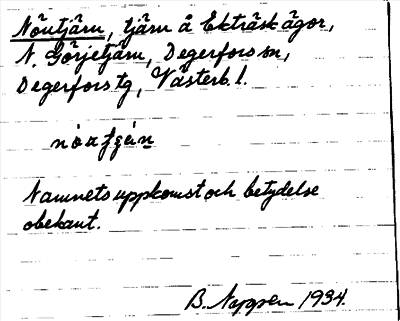 Nöutjärn, tjärn å Ekträsk ägor,
N. Görjetjärn, Degerfors sn,
Degerfors tg, Västerb. l.
Namnets uppkomst och betydelse
obekant.
B. 1934.